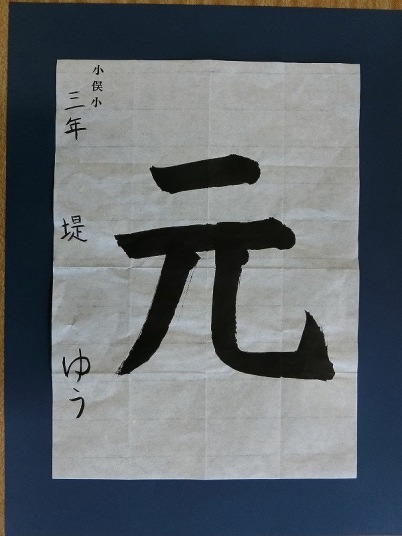 元
小俣小
三年 堤 ゆう